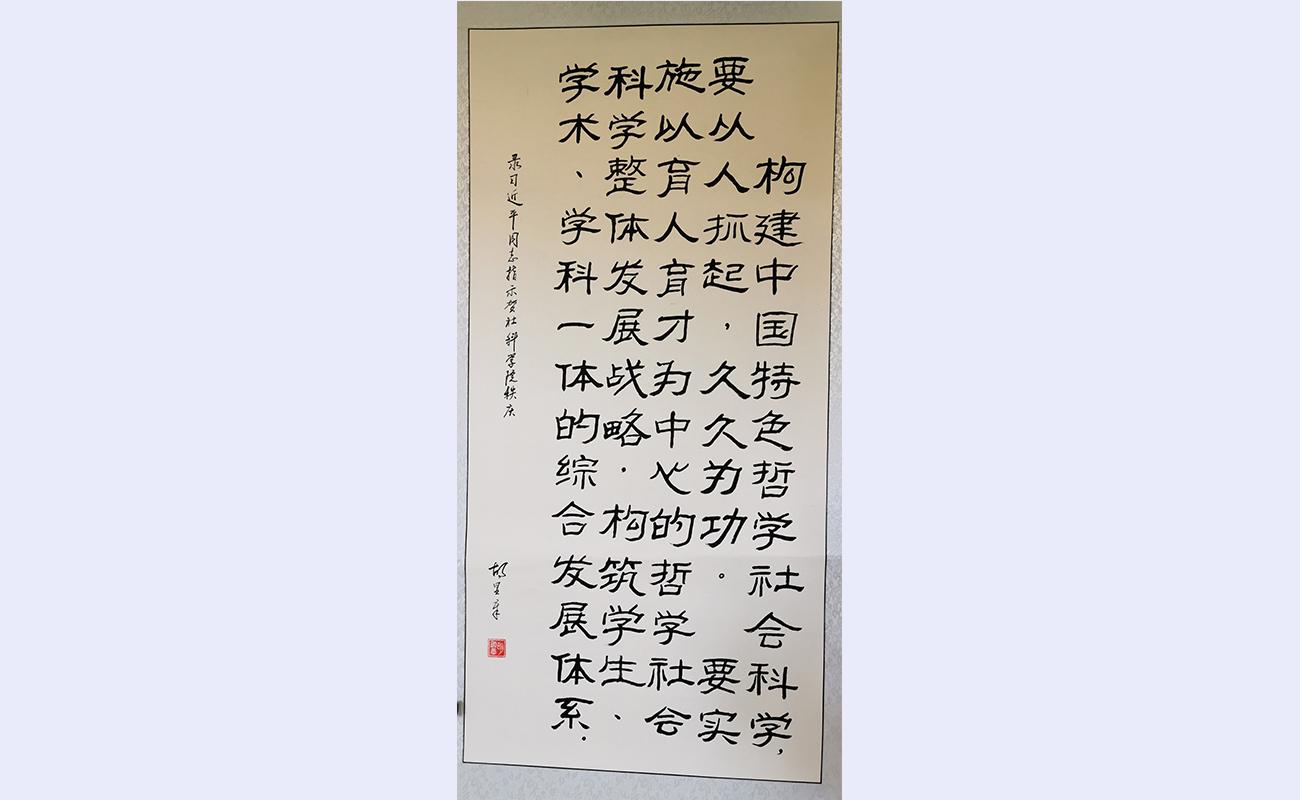 构建中国特色哲学社会科学,
要从人抓起,久久为功。 要实
施以育人育才为中心的哲学社会
科学整体发展战略.构筑学生、
学术、学科一体的综合发展体系.
录习近平同志指示贺社科学院轶庆